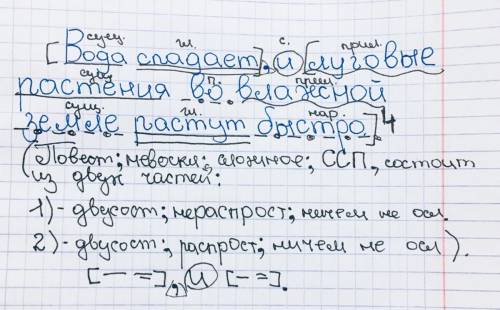 сущ. гл. с. прил.
[Вода спадает], и [луговые
сущ. п. прил.
растения во влажной
сущ. гл. нар.
земле растут быстро]. 4
(Повест; невоскл; сложное; ССП, состоит
из двух частей:
1) - двусост; нераспрост; ничем не осл.
2) - двусост; распрост; ничем не осл).
[— =], и [— =].